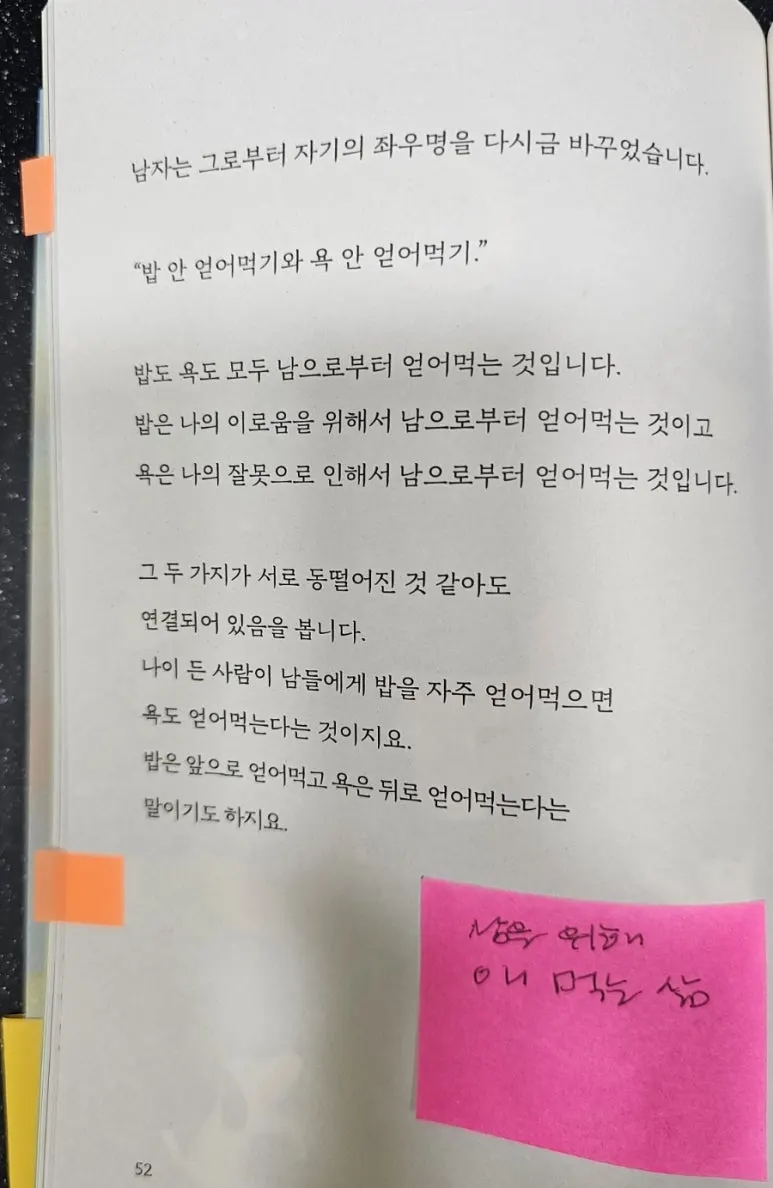 남자는 그로부터 자기의 좌우명을 다시금 바꾸었습니다.
“밥 안 얻어먹기와 욕 안 얻어먹기.”
밥도 욕도 모두 남으로부터 얻어먹는 것입니다.
밥은 나의 이로움을 위해서 남으로부터 얻어먹는 것이고
욕은 나의 잘못으로 인해서 남으로부터 얻어먹는 것입니다.
그 두 가지가 서로 동떨어진 것 같아도
연결되어 있음을 봅니다.
나이 든 사람이 남들에게 밥을 자주 얻어먹으면
욕도 얻어먹는다는 것이지요.
밥은 앞으로 얻어먹고 욕은 뒤로 얻어먹는다는
말이기도 하지요.
위해
먹는 삶
52